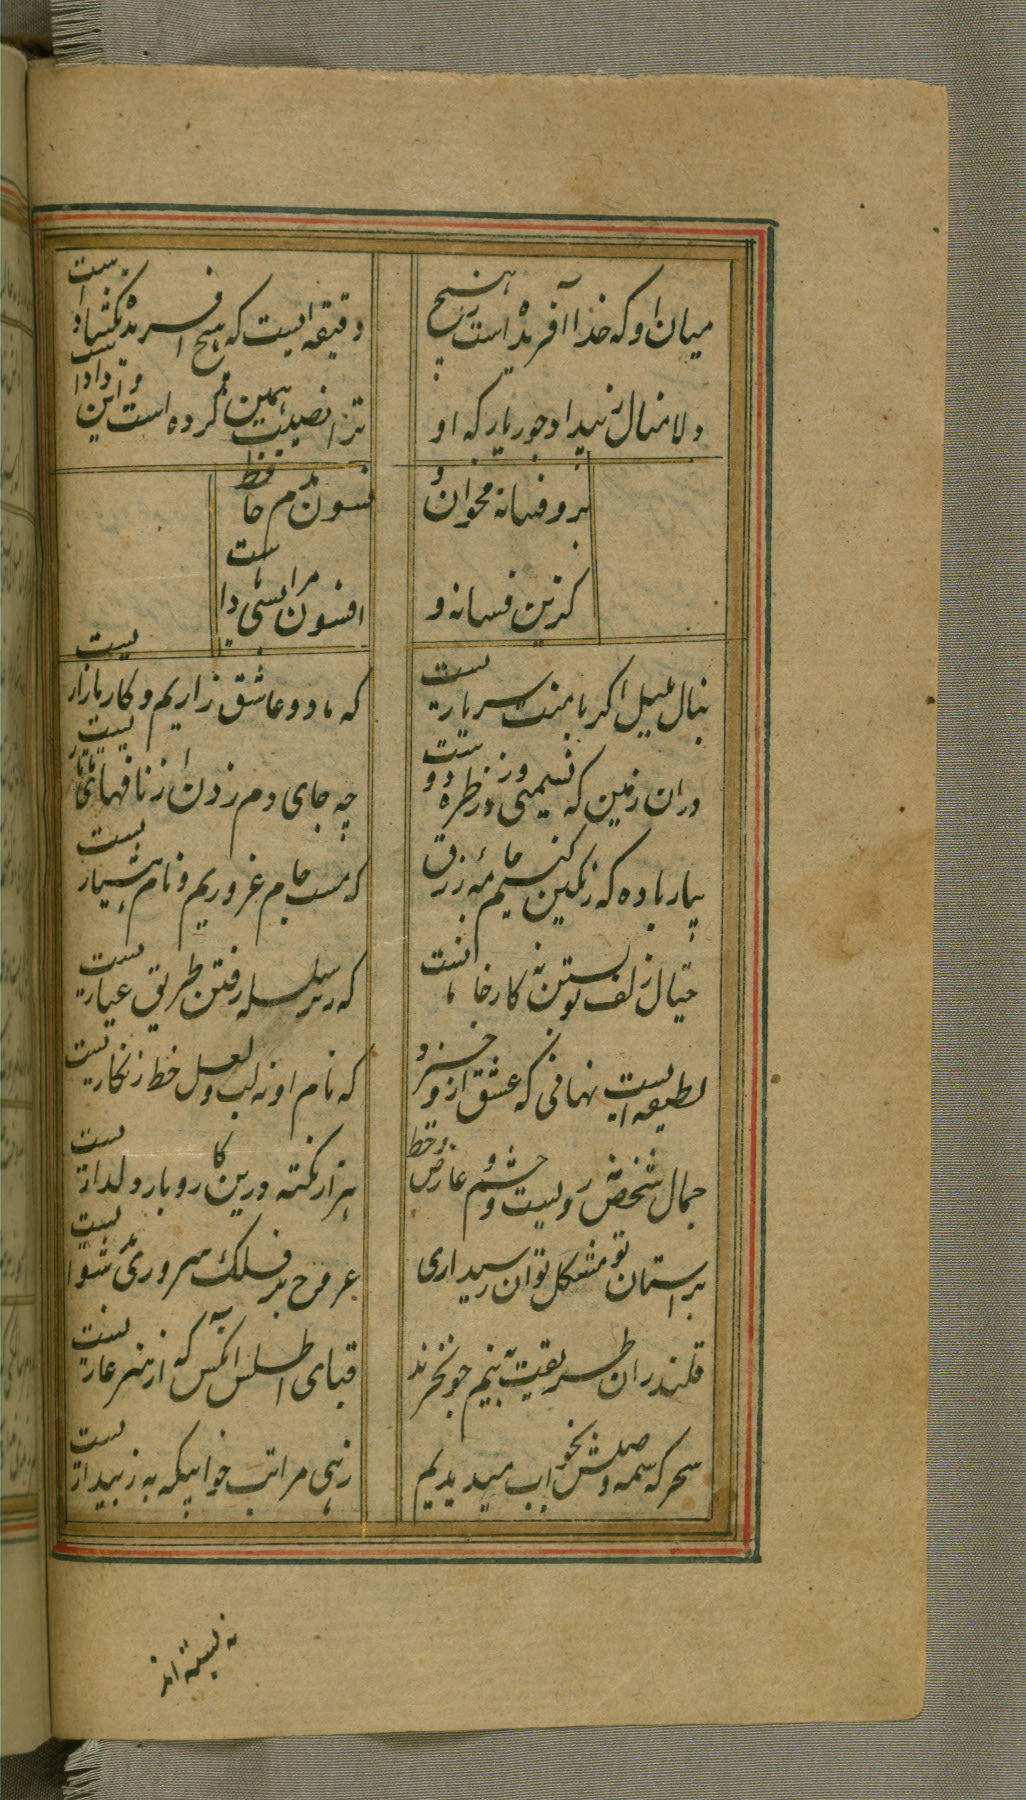 میان او که خدا آفریده است ز هیچ
دقیقه ایست که هیچ آفریده نگشادست
دلا منال ز بیداد و جور یار که او
ترا نصیب همین کرده است و این دادست
برو فسانه مخوان و
فسون مدم حافظ
کزین فسانه و
افسون مرا بسی یادست
بنال بلبل اگر با منت سر یاریست
که ما دو عاشق زاریم و کار ما زاریست
دران زمین که نسیمی وزد ز طره دوست
چه جای دم زدن از نافهای تاتاریست
بیار باده که رنگین کنیم جامهٔ زرق
که مست جام غروریم و نام هشیاریست
خیال زلف تو پختن نه کار خامانست
که زیر سلسله رفتن طریق عیاریست
لطیفه ایست نهانی که عشق ازو خیزد
که نام او نه لب لعل و خط زنگاریست
جمال شخص نه رویست و چشم و عارض و خط
هزار نکته درین کار و بار دلداریست
بر استان تو مشکل توان رسید اری
عروج بر فلک سروری بدشواریست
قلندران طریقت به نیم جو نخرند
قبای اطلس انکس که از هنر عاریست
سحر کرشمه وصلش بخواب میدیدیم
زهی مراتب خوابیکه به ز بیداریست
نه بسته اند